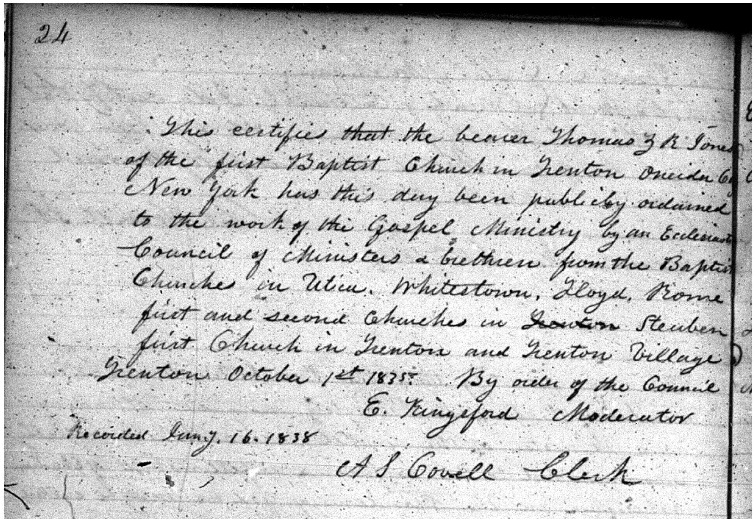 24
This certifies that the bearer Thomas Z R Jones
of the first Baptist Church in Trenton Oneida Co
New York has this day been publicly ordained
to the work of the Gospel Ministry by an Ecclesiast
Council of Ministers & brethren from the Baptist
Churches in Utica. Whitestown. Floyd. Rome
first and second Churches in Trenton Steuben
first Church in Trenton and Trenton Village
Trenton October 1st 1835. By order of the Council
E. Kingsford Moderator
Recorded Jany. 16. 1838
A S Covell Clerk